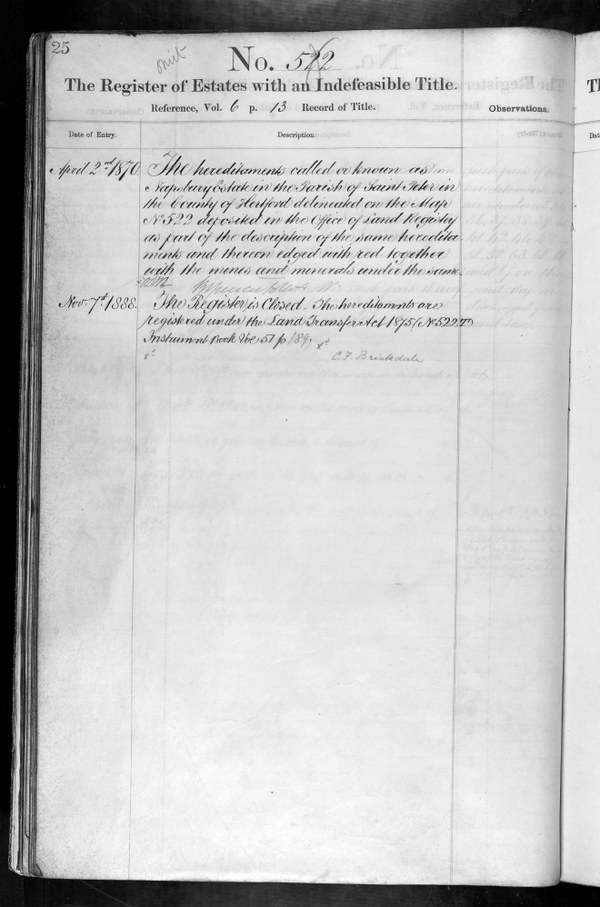 25
omit
No. 522
The Register of Estates with an Indefeasible Title.
Reference, Vol. 6 p. 13 Record of Title.
Observations.
Date of Entry.
Description.
April 2nd 1870. The hereditaments called or known as
Napsbury Estate in the Parish of Saint Peter in
the County of Hertford delineated on the Map
No 522 deposited in the Office of Land Registry
as part of the description of the same heredita
ments and thereon edged with red together
with the mines and minerals under the same.
Nov. 7th 1888. The Register is Closed. The hereditaments are
registered under the Land Transfer Act 1875 (No 522 TD
Instrument Book Vol 51 p 189.
C. F. Brickdale